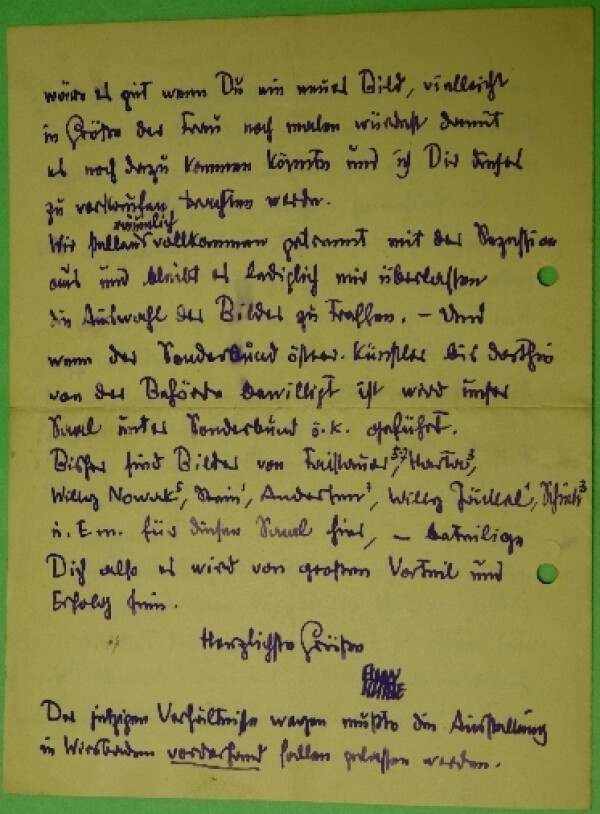 wäre es gut wenn Du ein neues Bild, vielleicht
in Größe der Frau noch malen würdest damit
es noch dazu kommen könnte und ich Dir dieses
zu verkaufen trachten werde.
räumlich
Wir stellen vollkommen getrennt mit der Sezession
aus und bleibt es lediglich mir überlassen
die Auswahl der Bilder zu treffen. – Und
wenn der Sonderbund österr. Künstler bis dorthin
von der Behörde bewilligt ist wird unser
Saal unter Sonderbund ö.k. geführt.
Bisher sind Bilder von Faistauer, Harta³,
Willy Nowak⁵, Andersen, Willy Jäckel,
u. E. m. für diesen Saal hier, – beteilige
Dich also es wird von großem Vorteil und
Erfolg sein.
Herzlichste Grüße
Der jetzigen Verhältnisse wegen mußte die Ausstellung
in Wiesbaden vorderhand fallen gelassen werden.